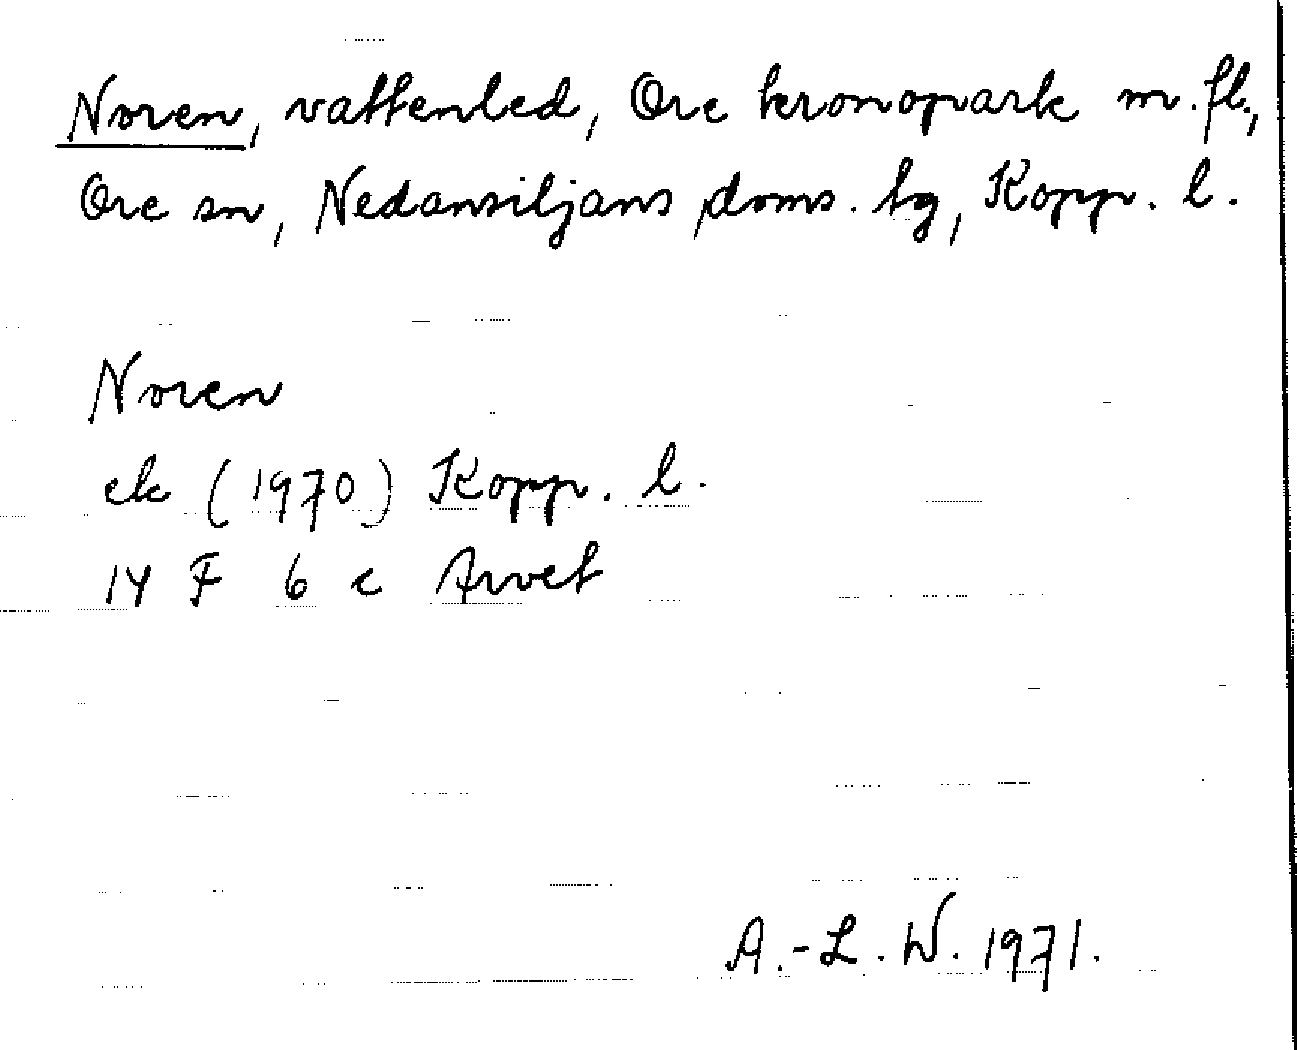 Noren, vattenled, Ore kronopark m. fl.,
Ore sn, Nedansiljans doms. tg, Kopp. l.
Noren
ek (1970) Kopp. l.
14 F 6 c Arvet
A.-L. W. 1971.